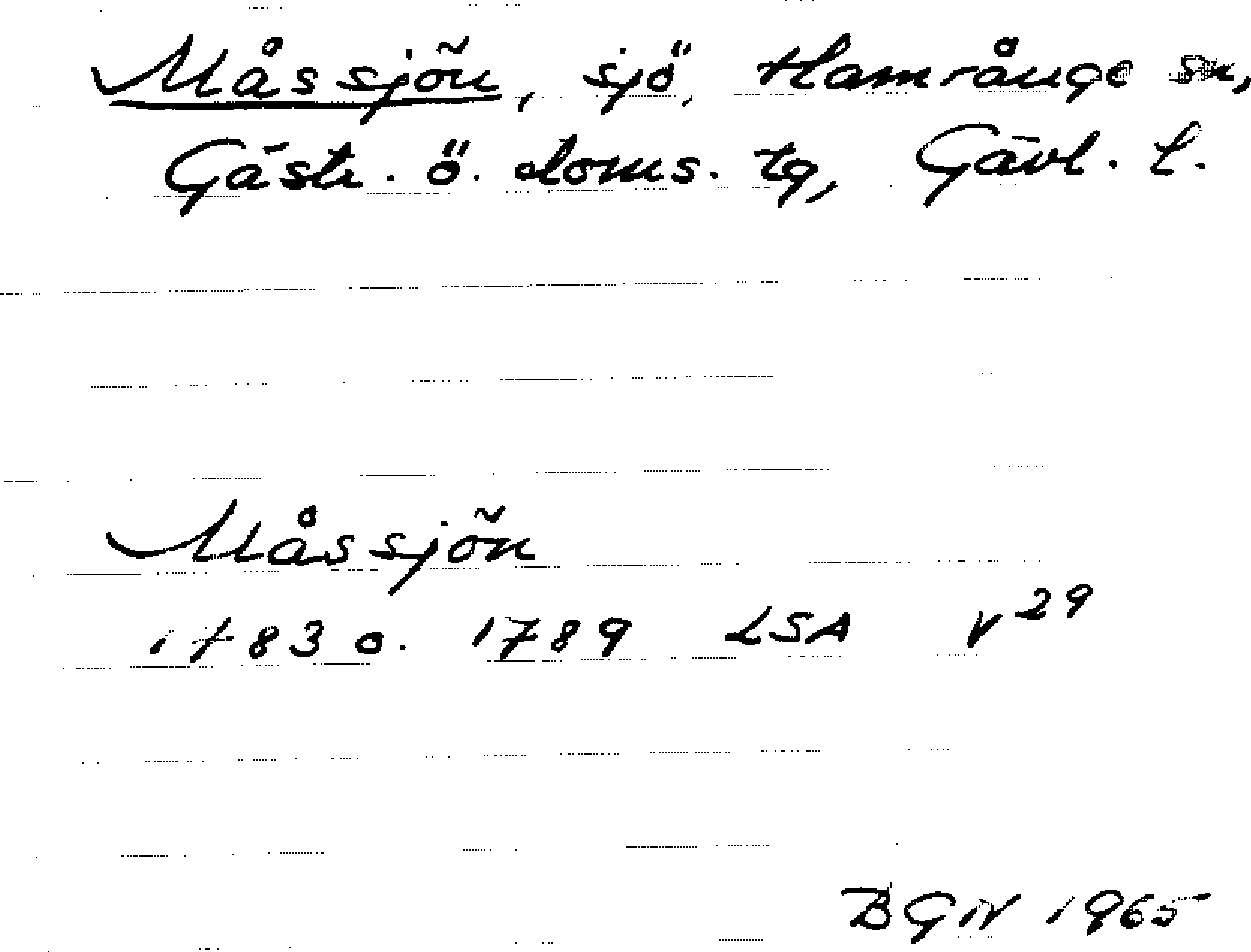 Måssjön, sjö, Hamrånge sn,
Gästr. ö. doms. tg, Gävl. l.
Måssjön
1783 o. 1789 LSA V29
BGN 1965